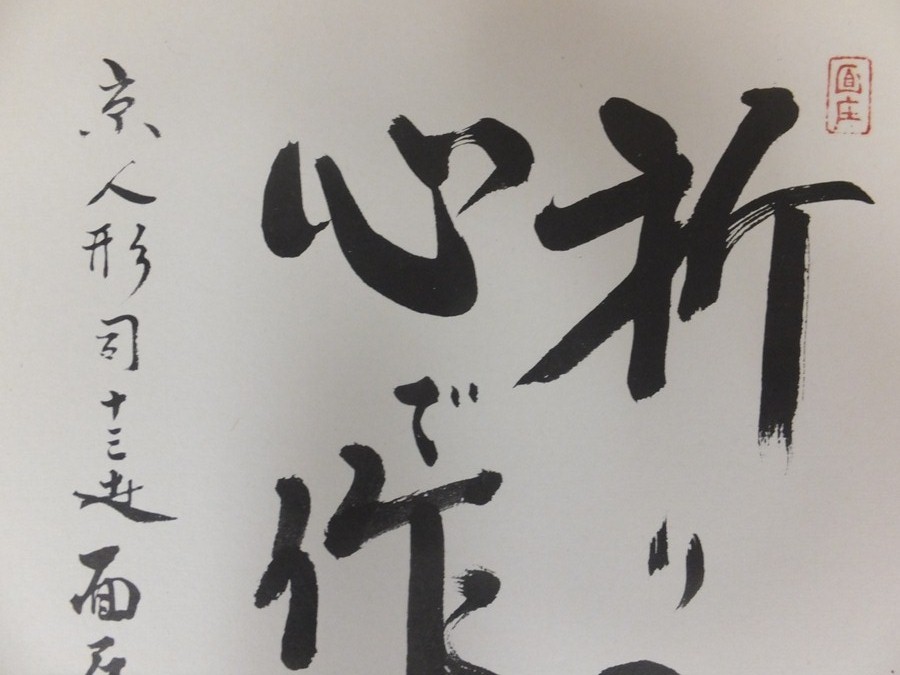 面庄
祈り
心で作
京人形司十三世面庄